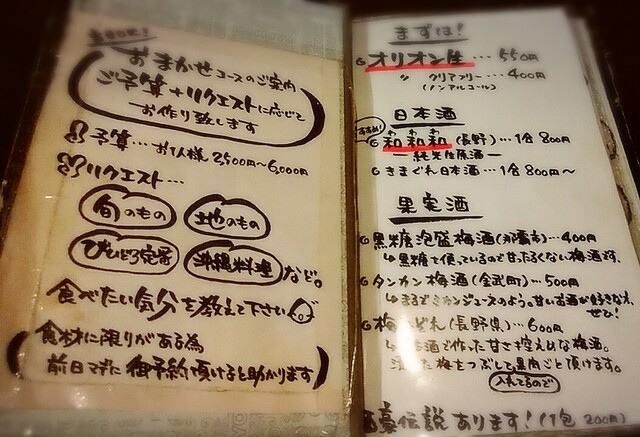 おまかせコースのご案内
ご予算+リクエストに応じて
お作り致します
予算…お1人様 2,500円〜6,000円
リクエスト…
旬のもの
土地のもの
びいどろ定番
沖縄料理
など。
食べたい気分を教えて下さい
食材に限りがある為
前日までに御予約頂けると助かります
まずは!
オリオン生…550円
〃 クリアフリー…400円
(ノンアルコール)
日本酒
おすすめ!
わ わ わ
和和和(長野)…1合800円
―純米生原酒―
きまぐれ日本酒…1合800円〜
果実酒
黒糖泡盛梅酒(那覇市)…400円
↳黒糖を使っているので甘ったるくない梅酒です。
タンカン梅酒(金武町)…500円
↳まるでミカンジュースのよう。甘いお酒が好きな人、
ぜひ!
(長野県)…600円
酒で作った甘さ控えめな梅酒。
梅をつぶして果肉ごと頂けます。
入れてるので
豪伝説あります!(1包200円)